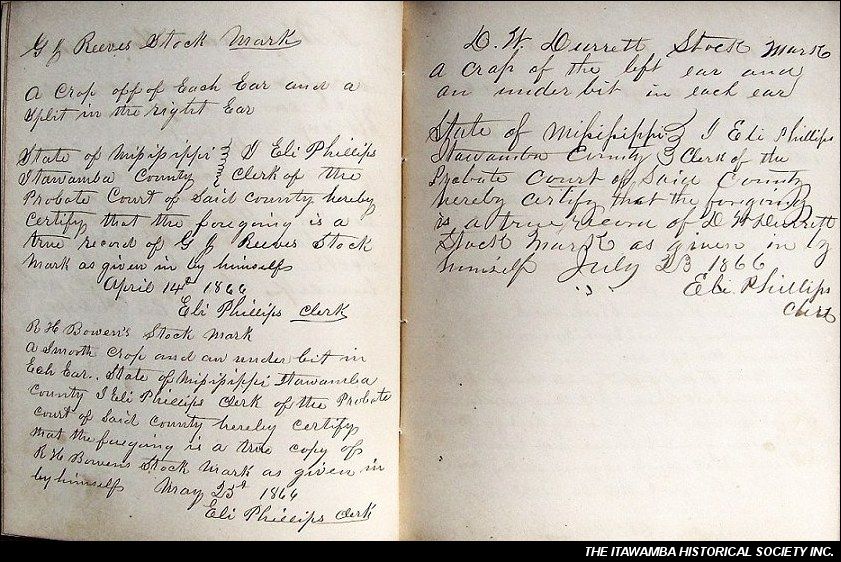 G J Reeves Stock Mark
A Crop off of Each Ear and a
Split in the right Ear
State of Mississippi } I Eli Phillips
Itawamba County } Clerk of the
Probate Court of Said County hereby
Certify that the foregoing is a
true record of G J Reeves Stock
Mark as given in by himself
April 14th 1866
Eli Phillips Clerk
R H Bowen's Stock Mark
A Smooth Crop and an under bit in
Ech Ear. State of Mississippi Itawamba
County I Eli Phillips Clerk of the Probate
Court of Said County hereby Certify
that the foregoing is a true Copy of
R H Bowens Stock Mark as given in
by himself May 25th 1866
Eli Phillips Clerk
D. W. Durrett Stock Mark
a crap of the left ear and
an under bit in each ear
State of Mississippi } I Eli Phillips
Itawamba County } Clerk of the
Probate Court of Said County
hereby certify that the foregoing
is a true record of D W Durrett
Stock Mark as given in by
himself July 23 1866
Eli Phillips
Clerk
THE ITAWAMBA HISTORICAL SOCIETY INC.